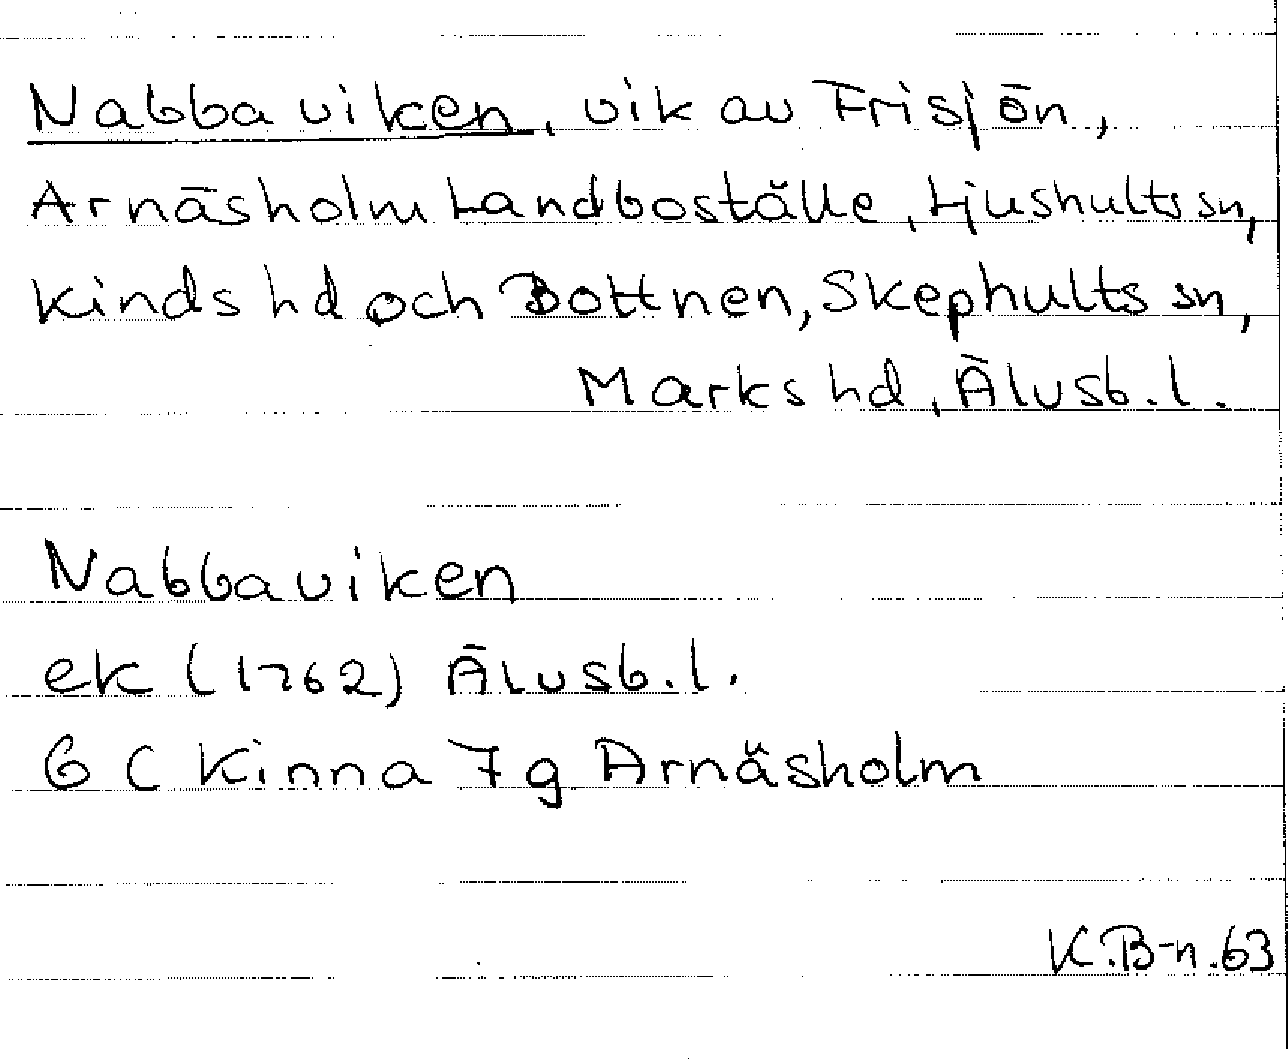 Nabbaviken, vik av Frisjön,
Arnäsholm Landboställe, Ljushults sn,
Kinds hd och Bottnen, Skephults sn,
Marks hd, Älvsb. l.
Nabbaviken
ek (1762) Älvsb. l.
6 C Kinna 7 g Arnäsholm
K.B-n. 63